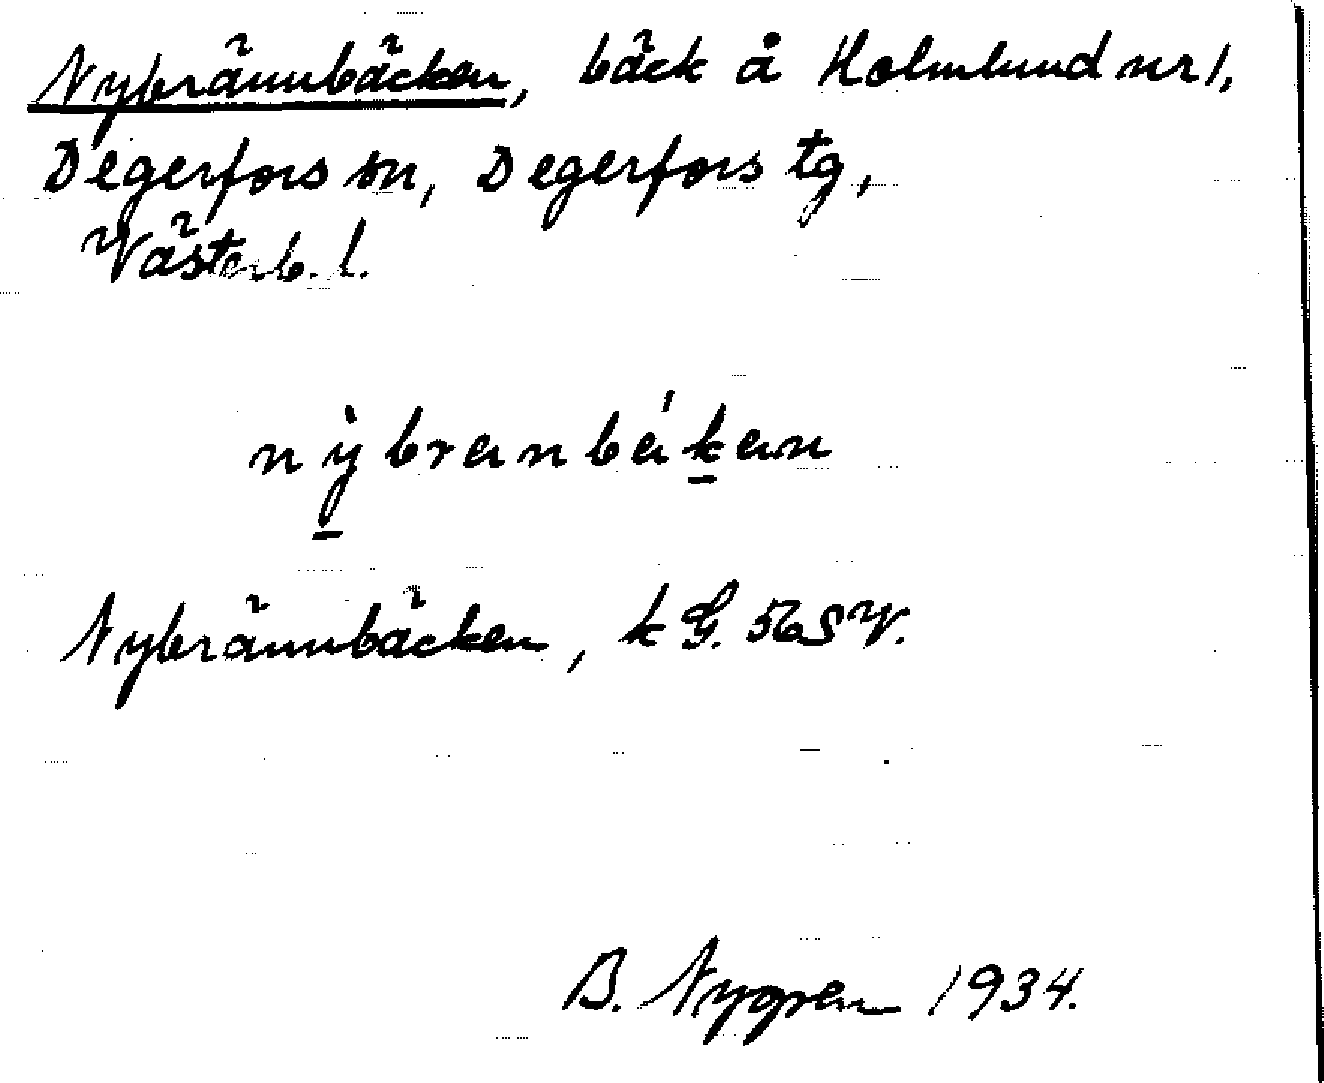 Nybrännbäcken, bäck å Holmlund nr 1,
Degerfors sn, Degerfors tg,
Västerb. l.
nỳbrenbékan
Nybrännbäcken, k G. 56 SV.
B. Nygren 1934.